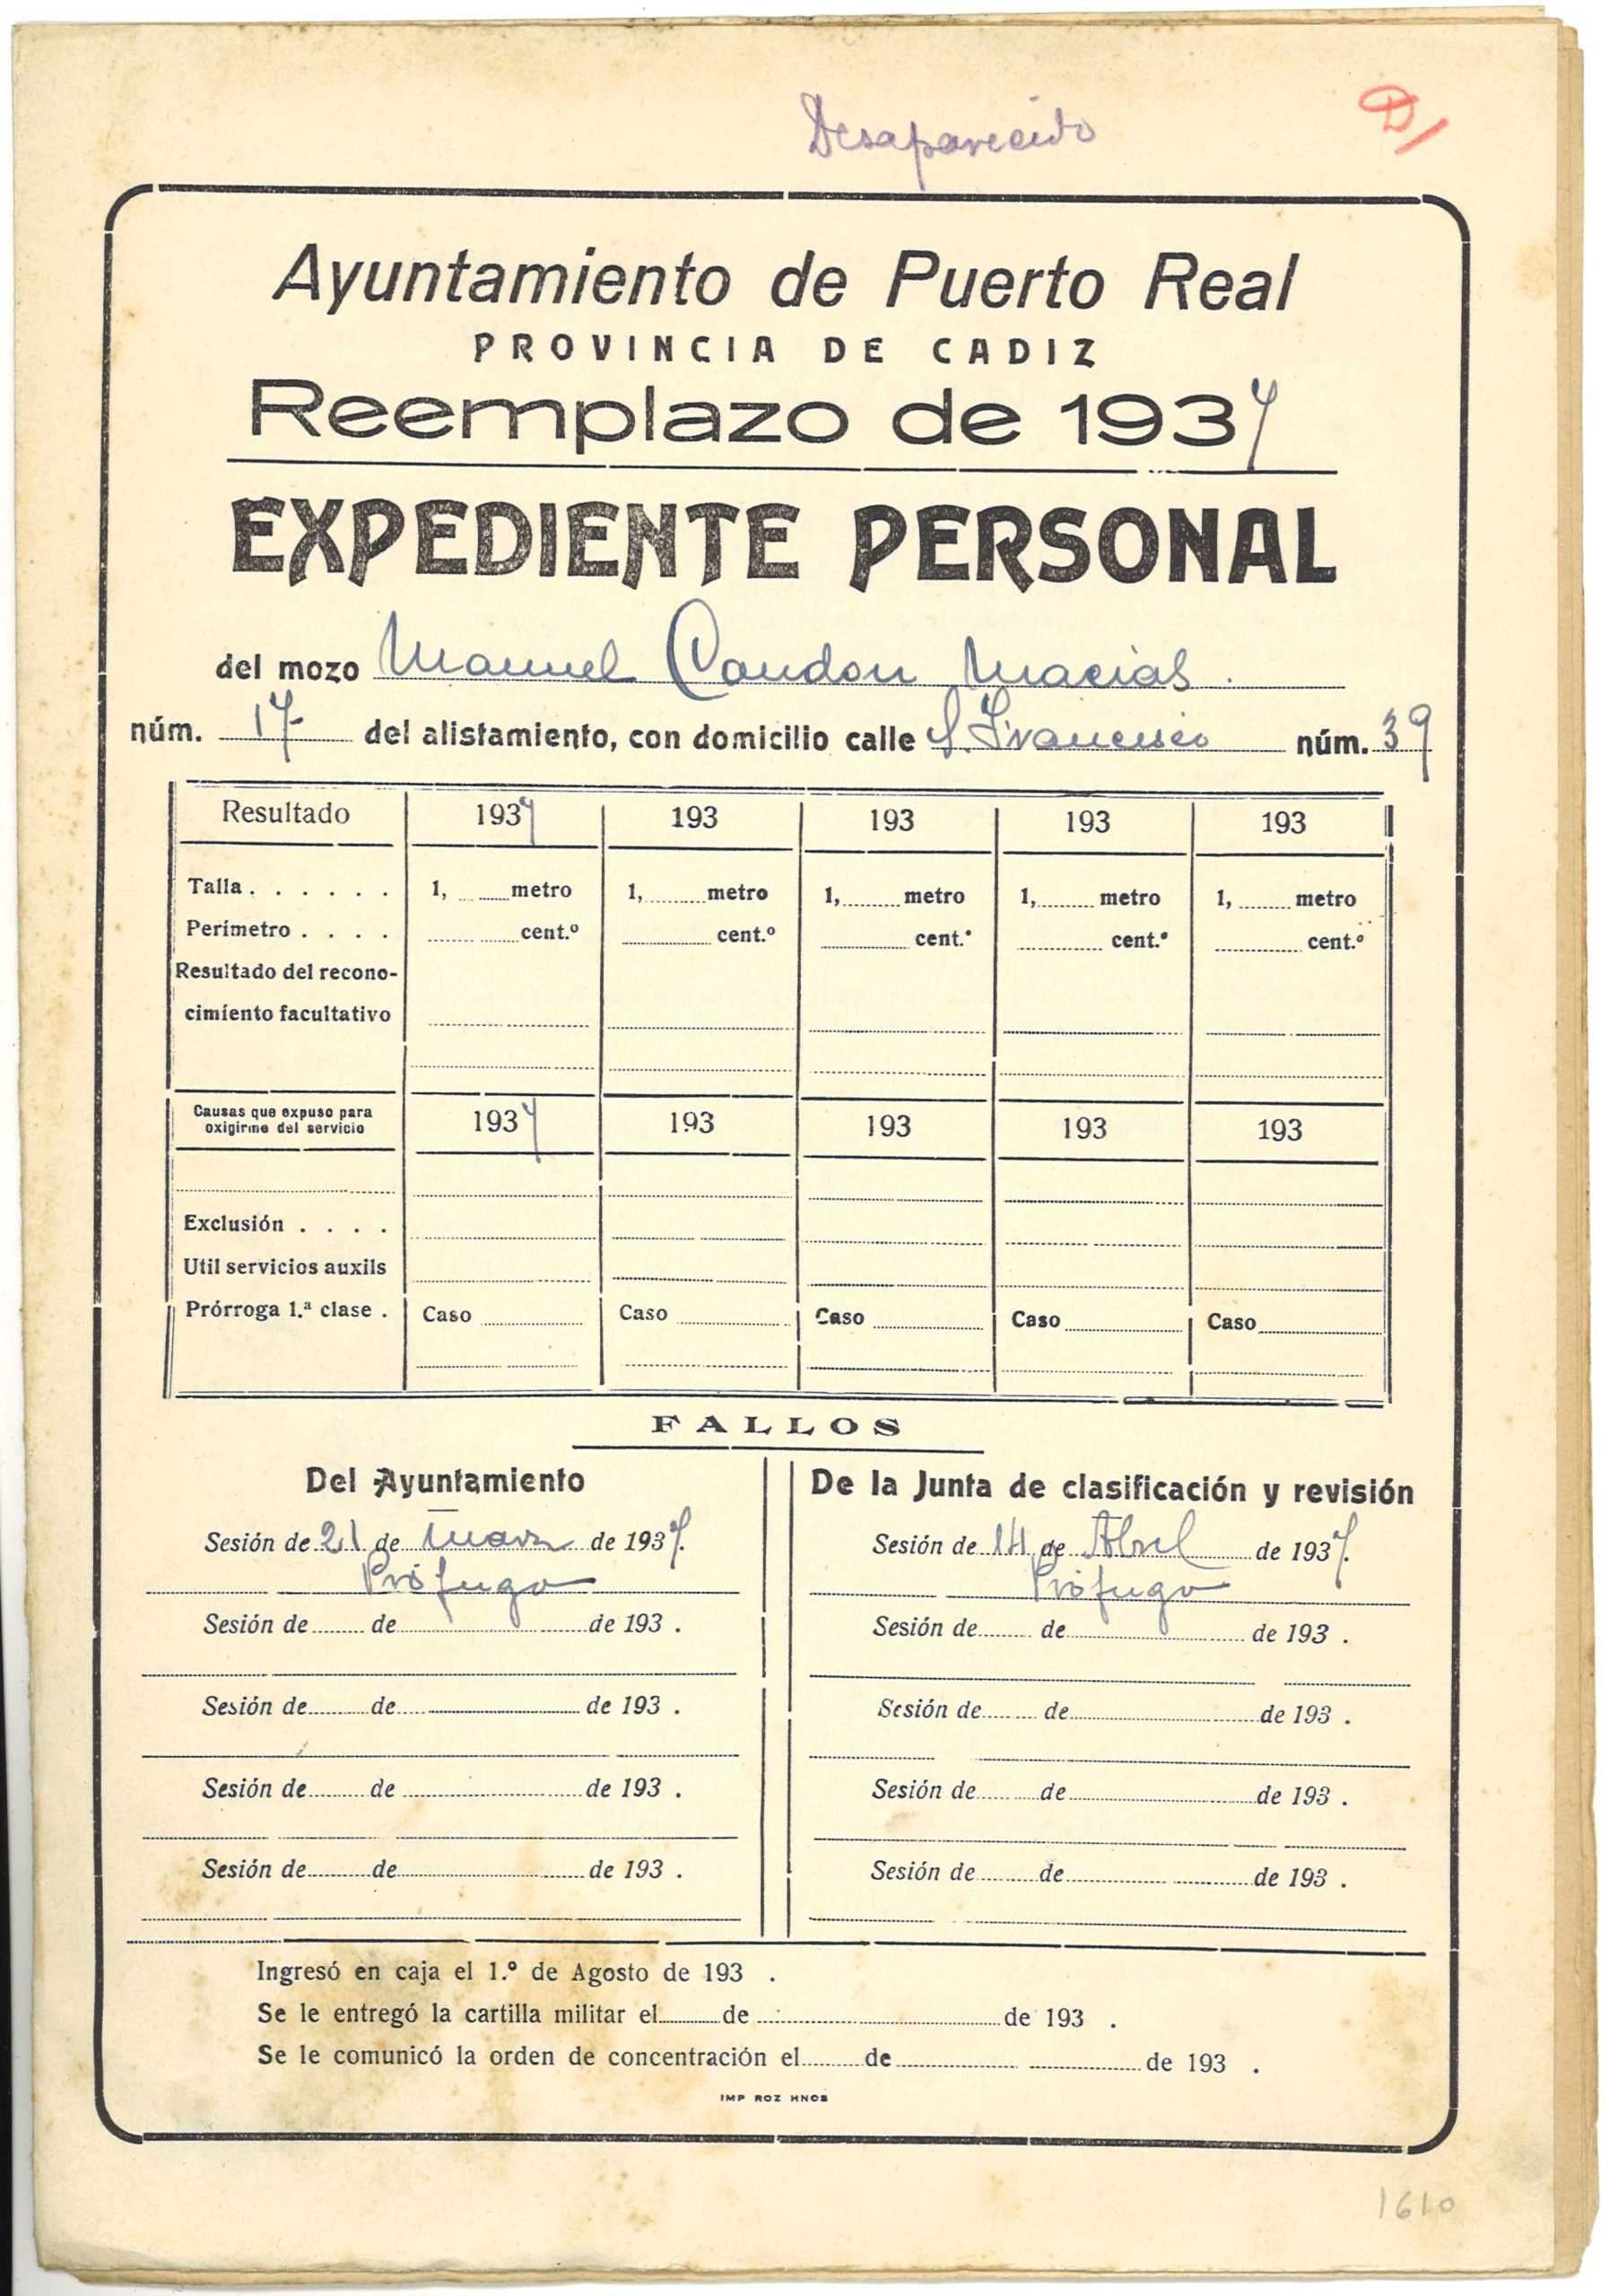 Desaparecido
D/
Ayuntamiento de Puerto Real
PROVINCIA DE CADIZ
Reemplazo de 1937
EXPEDIENTE PERSONAL
del mozo Manuel Candon Macias.
núm. 17 del alistamiento, con domicilio calle S. Francisco núm. 39
Resultado 1937 193 193 193 193
Talla . . . . . . 1, ........ metro 1, ........ metro 1, ........ metro 1, ........ metro 1, ........ metro
Perímetro . . . . ............ cent.º ............ cent.º ............ cent.º ............ cent.º ............ cent.º
Resultado del recono-
cimíento facultativo
Causas que expuso para
oxigirme del servicio 1937 193 193 193 193
Exclusión . . . .
Util servicios auxils
Prórroga 1.ª clase . Caso ............ Caso ............ Caso ............ Caso ............ Caso ............
FALLOS
Del Ayuntamiento De la Junta de clasificación y revisión
Sesión de 21 de Marzo de 1937. Sesión de 14 de Abril de 1937.
Prófugo Prófugo
Sesión de ........ de ........................ de 193 . Sesión de ........ de ........................ de 193 .
Sesión de ........ de ........................ de 193 . Sesión de ........ de ........................ de 193 .
Sesión de ........ de ........................ de 193 . Sesión de ........ de ........................ de 193 .
Sesión de ........ de ........................ de 193 . Sesión de ........ de ........................ de 193 .
Ingresó en caja el 1.º de Agosto de 193 .
Se le entregó la cartilla militar el ........ de ........................ de 193 .
Se le comunicó la orden de concentración el ........ de ........................ de 193 .
IMP ROZ HNOS
1610